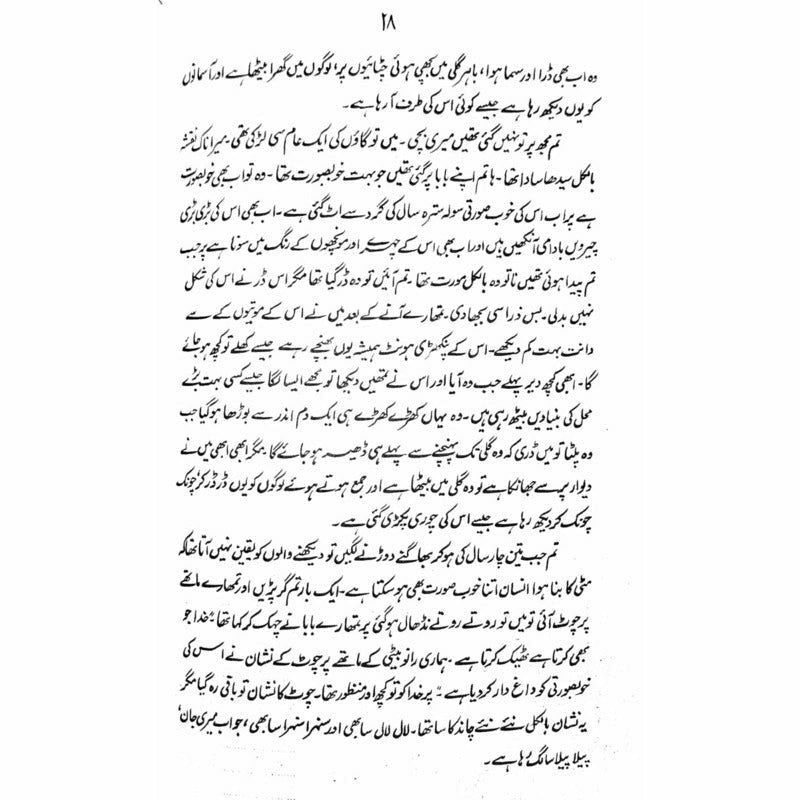 ۲۸
وہ اب بھی ڈرا اور سہما ہوا، باہر گلی میں بچھی ہوئی چٹائیوں پر، لوگوں میں گھرا بیٹھا ہے اور آسمانوں
کو یوں دیکھ رہا ہے جیسے کوئی اس کی طرف آ رہا ہے۔
تم مجھ پر تو نہیں گئی تھیں میری بچی۔ میں تو گاؤں کی ایک عام سی لڑکی تھی۔ میرا ناک نقشہ
بالکل سیدھا سادا تھا۔ ہاں تم اپنے بابا پر گئی تھیں جو بہت خوبصورت تھا۔ وہ تو اب بھی خوبصورت
ہے پر اب اس کی خوب صورتی سولہ سترہ سال کی گرد سے اٹ گئی ہے۔ اب بھی اس کی بڑی بڑی
چیرویں بادامی آنکھیں ہیں اور اب بھی اس کے چہرے اور مونچھوں کے رنگ میں سونا ہے پر جب
تم پیدا ہوئی تھیں نا تو وہ بالکل مورت تھا۔ تم آئیں تو وہ ڈر گیا تھا مگر اس ڈر نے اس کی شکل
نہیں بدلی۔ بس ذرا سی بجھا دی۔ تمھارے آنے کے بعد میں نے اس کے موتیوں کے سے
دانت بہت کم دیکھے۔ اس کے پنکھڑی ہونٹ ہمیشہ یوں بھنچے رہے جیسے کھلے تو کچھ ہو جائے
گا۔ ابھی کچھ دیر پہلے جب وہ آیا اور اس نے تمھیں دیکھا تو مجھے ایسا لگا جیسے کسی بہت بڑے
محل کی بنیادیں بیٹھ رہی ہیں۔ وہ یہاں کھڑے کھڑے ہی ایک دم اندر سے بوڑھا ہو گیا جب
وہ پلٹا تو میں ڈری کہ وہ گلی تک پہنچنے سے پہلے ہی ڈھیر ہو جائے گا۔ مگر ابھی ابھی میں نے
دیوار پر سے جھانکا ہے تو وہ گلی میں بیٹھا ہے اور جمع ہوتے ہوئے لوگوں کو یوں ڈر ڈر کر، چونک
چونک کر دیکھ رہا ہے جیسے اس کی چوری پکڑی گئی ہے۔
تم جب تین چار سال کی ہو کر بھاگنے دوڑنے لگیں تو دیکھنے والوں کو یقین نہیں آتا تھا کہ
مٹی کا بنا ہوا انسان اتنا خوب صورت بھی ہو سکتا ہے۔ ایک بار تم گر پڑیں اور تمھارے ماتھے
پر چوٹ آئی تو میں تو روتے روتے نڈھال ہو گئی پر تمھارے بابا نے چہک کر کہا تھا "خدا جو
بھی کرتا ہے ٹھیک کرتا ہے۔ ہماری رانو بیٹی کے ماتھے پر چوٹ کے نشان نے اس کی
خوبصورتی کو داغ دار کر دیا ہے۔" پر خدا کو تو کچھ اور منظور تھا۔ چوٹ کا نشان تو باقی رہ گیا مگر
یہ نشان بالکل نئے نئے چاند کا سا تھا۔ لال لال سا بھی اور سنہرا سنہرا سا بھی، جو اب میری جان،
پیلا پیلا سا لگ رہا ہے۔